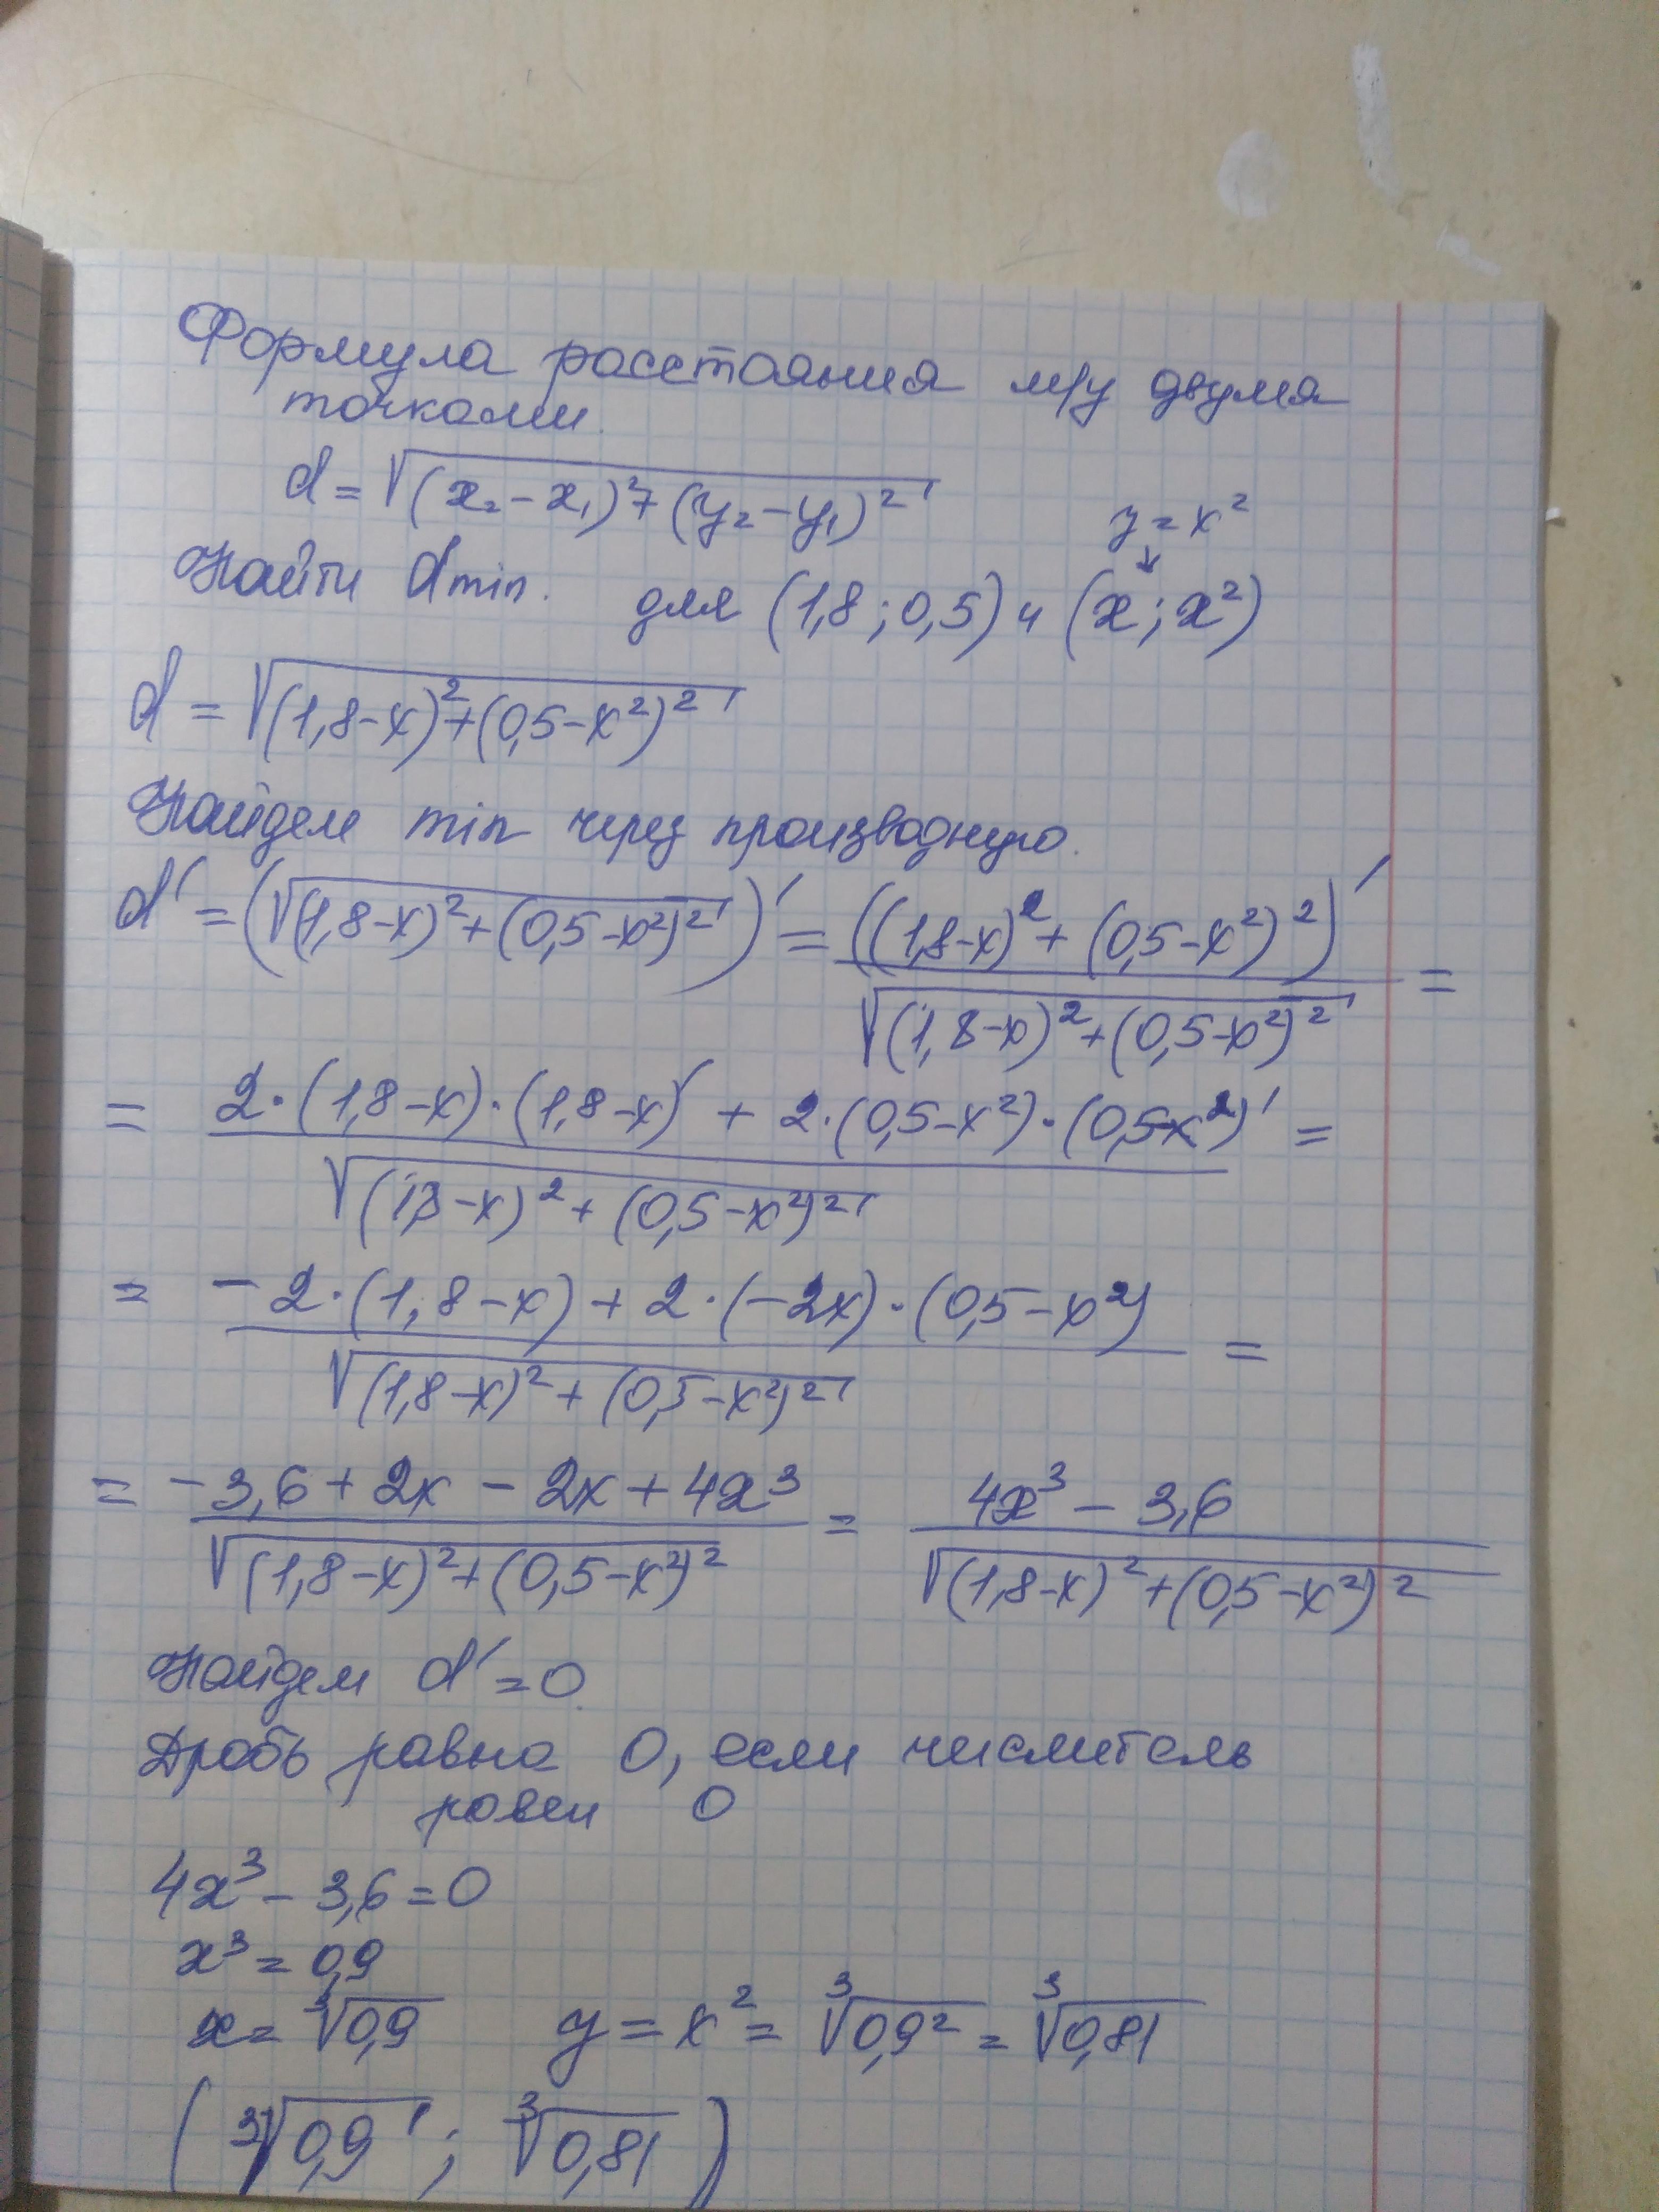 Формула расстояния м/у двумя
точками.
d = √((x₂ - x₁)² + (y₂ - y₁)²)
y = x²
↓
Найти dmin. для (1,8 ; 0,5) и (x ; x²)
d = √((1,8-x)² + (0,5-x²)²)
Найдем min через производную.
d' = (√((1,8-x)² + (0,5-x²)²))' = ((1,8-x)² + (0,5-x²)²)' / √((1,8-x)² + (0,5-x²)²) =
= (2·(1,8-x)·(1,8-x)' + 2·(0,5-x²)·(0,5-x²)') / √((1,8-x)² + (0,5-x²)²) =
= (-2·(1,8-x) + 2·(-2x)·(0,5-x²)) / √((1,8-x)² + (0,5-x²)²) =
= (-3,6 + 2x - 2x + 4x³) / √((1,8-x)² + (0,5-x²)²) = (4x³ - 3,6) / √((1,8-x)² + (0,5-x²)²)
Найдем d' = 0.
Дробь равна 0, если числитель
равен 0
4x³ - 3,6 = 0
x³ = 0,9
x = ∛0,9 y = x² = ∛0,9² = ∛0,81
(∛0,9 ; ∛0,81)